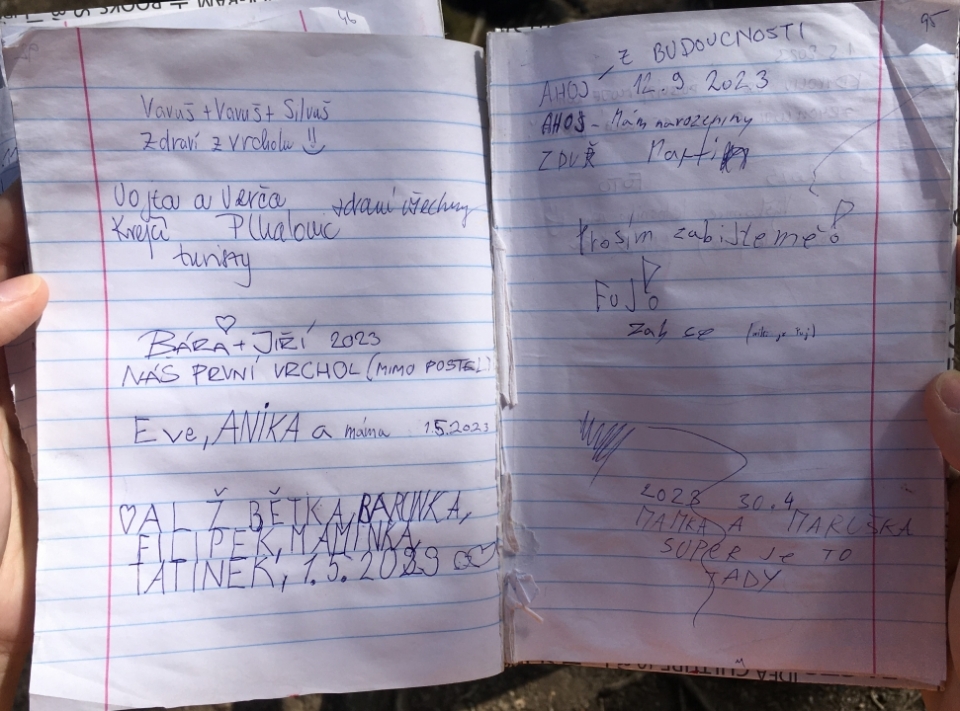 46
Vavuš + Vavuš + Silvuš
Zdraví z vrcholu !!
Vojta a Verča zdraví všechny
Krejčí
turisty
BÁRA + JIŘÍ 2023
NÁŠ PRVNÍ VRCHOL (MIMO POSTEL)
Eve, ANIKA a máma 1.5.2023
ALŽBĚTKA, BARUNKA,
FILIPEK, MAMINKA,
TATÍNEK, 1.5.2023
95
Z BUDOUCNOSTI
AHOJ 12.9 2023
AHOJ - Mám narozeniny
ZDVŠ
Prosím zabijte mě!
FUJ!
Zab se
2023 30.4
MAMKA A MARUŠKA
SUPER Je TO
TADY